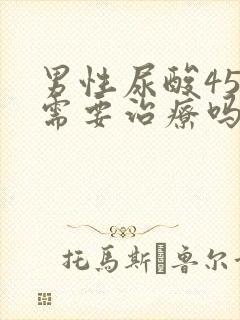 男性尿酸45
需要治療吗
托馬斯 魯尔